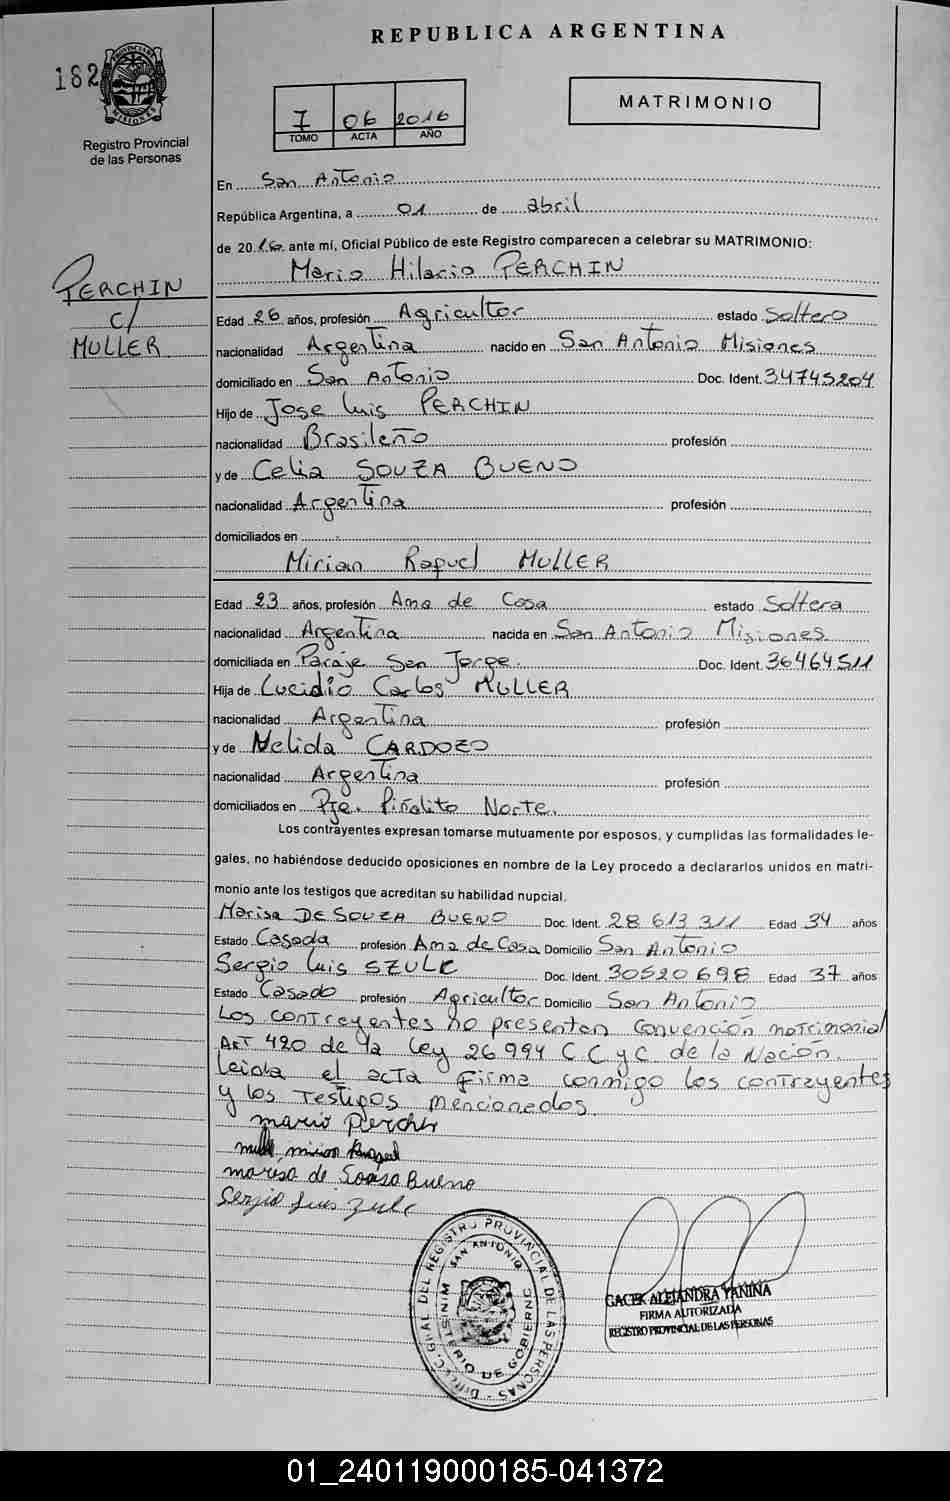 REPUBLICA ARGENTINA
182
PROVINCIA DE MISIONES
Registro Provincial
de las Personas
I 06 2016
TOMO ACTA AÑO
MATRIMONIO
En San Antonio
República Argentina, a 01 de abril
de 2016 ante mí, Oficial Público de este Registro comparecen a celebrar su MATRIMONIO:
Mario Hilario PERCHIN
PERCHIN
c/
MULLER
Edad 26 años, profesión Agricultor estado Soltero
nacionalidad Argentina nacido en San Antonio Misiones
domiciliado en San Antonio Doc. Ident. 34745204
Hijo de Jose Luis PERCHIN
nacionalidad Brasileño profesión
y de Celia SOUZA BUENO
nacionalidad Argentina profesión
domiciliados en
Mirian Raquel MULLER
Edad 23 años, profesión Ama de Casa estado Soltera
nacionalidad Argentina nacida en San Antonio Misiones
domiciliada en Paraje San Jorge. Doc. Ident. 36464511
Hija de Lucidio Carlos MULLER
nacionalidad Argentina profesión
y de Nelida CARDOZO
nacionalidad Argentina profesión
domiciliados en Pje. Piñalito Norte.
Los contrayentes expresan tomarse mutuamente por esposos, y cumplidas las formalidades le-
gales, no habiéndose deducido oposiciones en nombre de la Ley procedo a declararlos unidos en matri-
monio ante los testigos que acreditan su habilidad nupcial.
Marisa DE SOUZA BUENO Doc. Ident. 28 613 311 Edad 34 años
Estado Casada profesión Ama de Casa Domicilio San Antonio
Sergio Luis SZULC Doc. Ident. 30520698 Edad 37 años
Estado Casado profesión Agricultor Domicilio San Antonio
Los contrayentes no presentan Convención matrimonial
ART 420 de la Ley 26994 C.C y C de la Nación.
Leida el acta firma conmigo los contrayentes
y los Testigos mencionados.
mario Perchin
mirian Raquel
marisa de Souza Bueno
Sergio Luis Zulc
DIREC. GRAL DEL REGISTRO PROVINCIAL DE LAS PERSONAS
SAN ANTONIO
MINISTERIO DE GOBIERNO
GACEK ALEJANDRA YANINA
FIRMA AUTORIZADA
REGISTRO PROVINCIAL DE LAS PERSONAS
01_240119000185-041372